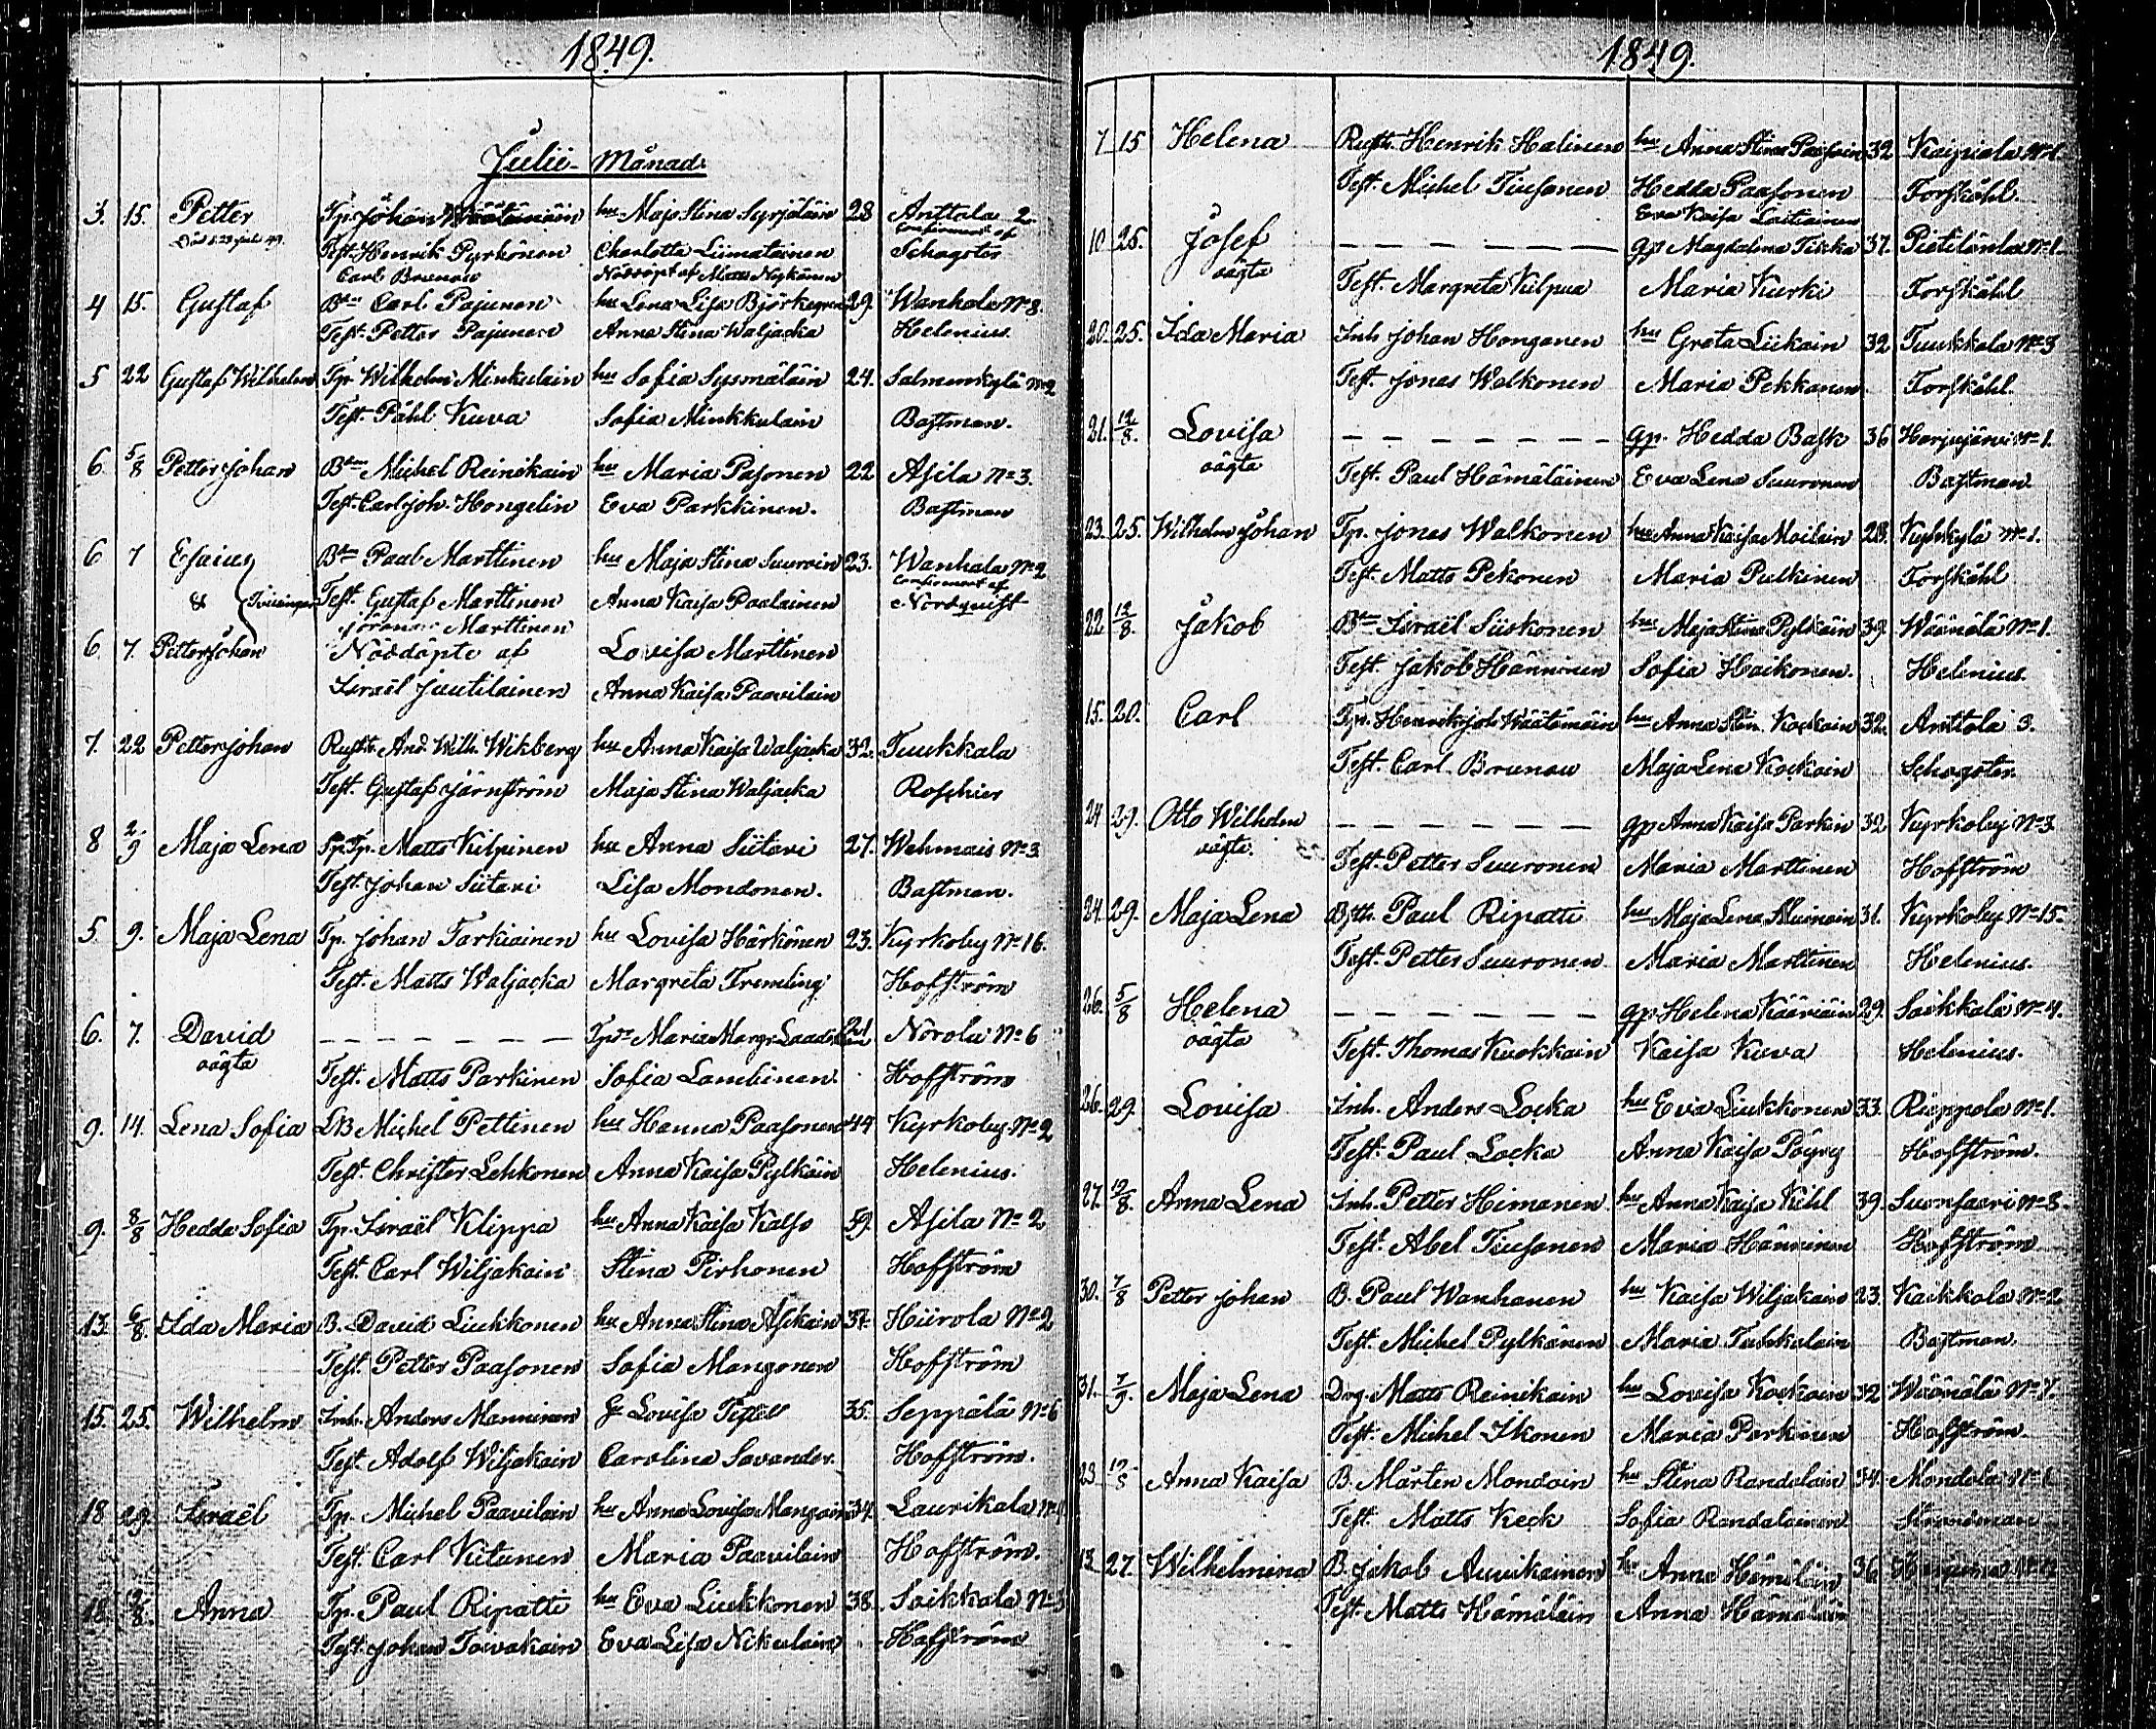 1849.
Julii - Månad.
3. 15. Petter Tp. Johan Wäätämäin hu Maja Stina Syrjäläin 28 Anttola 2.
Död d. 23 Juli 49. Test. Henrik Pyrkönen Charlotta Liimatainen confirmerat af Schogster
Carl Brunow Nöddöpt af Matts Nykänen
4 15. Gustaf Bdn Carl Pajunen hu Lena Lisa Björkegren 29. Wanhala No 8.
Test. Petter Pajunen Anna Stina Waljacka Helenius.
5 22 Gustaf Wilhelm Tp. Wilhelm Minkulain hu Sofia Sysmäläin 24. Salmenkylä No 2
Test. Påhl Kuva Sofia Minkkulain Bastman.
6. 5/8 Petter Johan Bdn Michel Reinikain hu Maria Pasonen 22 Asila No 3.
Test. Carl Joh. Hongelin Eva Parkkinen. Bastman
6 7 Esaius Bdn Paul Marttinen hu Maja Stina Suuroin 23. Wanhala No 2
& Tvillingar Test. Gustaf Marttinen Anna Kaisa Paalainen confirmerat af Nordquist
Marttinen
6. 7. Petter Johan Nöddöpte af Lovisa Marttinen
Israël Juutilainen Anna Kaisa Paavilain
7. 22 Petter Johan Rusth. And. Wilh. Wikberg hu Anna Kaisa Waljacka 32. Tuukkala
Test. Gustaf Järnström Maja Stina Waljacka Roschier
8 2/9 Maja Lena Tp. Matts Kilpinen hu Anna Siitari 27. Wehmais No 3
Test. Johan Siitari Lisa Mondonen. Bastman.
5. 9. Maja Lena Tp. Johan Tarkiainen hu Lovisa Härkönen 23. Kyrkoby No 16.
Test. Matts Waljacka Margreta Fremling Hofström
6. 7. David — — — — — — Maria Margr. 21 Norola No 6
oägta Test. Matts Parkinen Sofia Lambinen. Hofström
9. 14. Lena Sofia LB Michel Pettinen hu Hanna Paasonen 44 Kyrkoby No 2
Test. Christer Lehkonen Anna Kaisa Pylkäin Helenius.
9. 8/8 Hedda Sofia Tp. Israël Klippa hu Anna Kaisa Kalso 59. Asila No 2
Test. Carl Wiljakain Stina Pirhonen Hofström
13. 6/8. Ida Maria B. David Liukkonen hu Anna Stina Asikain 37. Hiirola No 2
Test. Petter Paasonen Sofia Mangonen Hofström
15. 25. Wilhelm Inh. Anders Manninen Lovisa 35. Seppälä No 6
Test. Adolf Wiljakain Carolina Savander. Hofström.
18 29. Israël Tp. Michel Paavilain hu Anna Lovisa Mangoin 34. Laurikala
Test. Carl Kitunen Maria Paavilain Hofström.
18. 12/8. Anna Tp. Paul Ripatti hu Eva Liukkonen 38. Saikkala No 3
Test. Johan Towakain Eva Lisa Nikulain Hofström
1849.
7 15 Helena Rusth. Henrik Halinen hu Anna Stina Paasoin 32 Kaipiala No 1.
Test. Michel Tiusanen Hedda Paasonen Forsköhl.
Eva Kaisa Laitiainen
10. 25. Josef — — — — — — gp Magdalena Tikka 37. Pietilänlax No 1.
oägta Test. Margreta Kilpua Maria Kurki Forskåhl
20. 25. Ida Maria Inh Johan Honganen hu Greta Liikain 32 Tuukkala No 3
Test. Jonas Walkonen Maria Pekkanen. Forskåhl.
21. 12/8. Lovisa — — — — — — gp. Hedda Bask 36 Harjujärvi No 1.
oägta Test. Paul Hämäläinen Eva Lena Suuronen Bastman.
23. 25. Wilhelm Johan Tp. Jonas Walkonen hu Anna Kaisa Moilain 28. No 1.
Test. Matts Pekonen Maria Pulkinen Forskåhl
22 12/8. Jakob Bdn Israël Siiskonen hu Maja Stina Pylkäin 39. Wäänälä No 1.
Test. Jakob Hänninen Sofia Haikonen. Helenius.
15. 20. Carl Tp. Henrik Joh Wäätämäin hu Anna Stin. Kockain 32. Anttola 3.
Test. Carl Brunow Maja Lena Kockain Schogster
24 29. Otto Wilhelm — — — — — — gp Anna Kaisa Parkin 32 Kyrkoby No 3
oägta. Test. Petter Suuronen Maria Marttinen Hofström
24. 29. Maja Lena Paul Ripatti hu Maja Lena 31. Kyrkoby No 15.
Test. Petter Suuronen Maria Marttinen Helenius.
26. 5/8 Helena — — — — — — gp Helena Kääriäin 29. Saikkala No 4.
oägta Test. Thomas Kuokkain Kaisa Kuva Helenius.
26. 29. Lovisa Inh. Anders Locka hu Eva Liukkonen 33. Rieppola No 1.
Test. Paul Locka Anna Kaisa Pöyry Hofström.
27. 12/8. Anna Lena Inh. Petter Himanen hu Anna Kaisa Kihl 39. Suonsaari No 8.
Test. Abel Tiusanen Maria Hänninen Hofström
30. 7/8 Petter Johan B. Paul Wanhanen hu Kaisa Wiljakain 23. Kaikkola No 2.
Test. Michel Pylkänen Maria Tuhkalain Bastman.
31. 7/9. Maja Lena Drg. Matts Reinikain hu Lovisa Kockain 32 Wäänälä No 7.
Test. Michel Ikonen Maria Parkinen Hofström.
23 12/8 Anna Kaisa B. Mårten Mondoin hu Stina Randalain 34. Mondola No 1
Test. Matts Keck Sofia Randalainen Strandman
13 27. Wilhelmina B. Jakob Auvikainen hu Anna Hämäläin 36
Test. Matts Hämäläin Anna Hämäläin